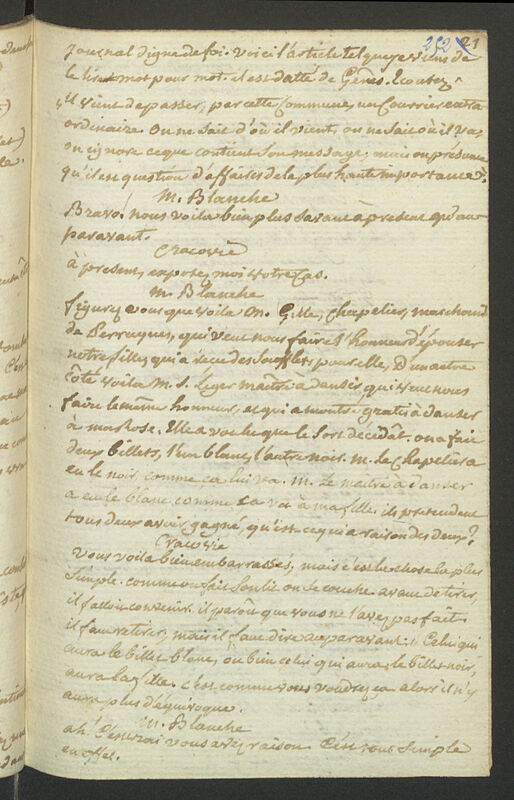 252 21
journal digne de foi. voici l'article tel que je viens de
le lire mot pour mot. il est datté de Gênes. Ecoutez
"Il vient de passer, par cette Commune, un Courrier extra
ordinaire. On ne sait d'où il vient, on ne sait où il va,
on ignore ce que contient son message; mais on présume
qu'il est question d'affaires de la plus haute importance".
M. Blanche
Bravo! nous voila bien plus savans à présent qu'au-
paravant.
Cracovie
à présent, exposez moi votre Cas.
M. Blanche
figurez vous que voila M. Gille, Chapelier, marchand
de Perruques, qui veut nous faire l'honneur d'épouser
notre fille, qui a recu des soufflets pour elle, D'un autre
côté voila M. S. Léger maître à danser, qui veut nous
faire le même honneur, et qui a montré gratis à danser
à ma Rose. Elle a voulu que le sort décidât. on a fait
deux billets, l'un blanc, l'autre noir. M. le Chapelier a
eu le noir, comme ça lui va. M. le maitre à danser
a eu le blanc comme ça va à ma fille. ils prétendent
tous deux avoir gagné, qu'est-ce qui a raison des deux?
Cracovie
Vous voila bien embarrassés, mais c'est la chose la plus
simple. comme on fait son lit on se couche. avant de tirer,
il falloit convenir. il paroît que vous ne l'avez pas fait.
il faut retirer, mais il faut dire auparavant: "Celui qui
aura le billet blanc, ou bien celui qui aura le billet noir,
aura la fille. c'est comme vous voudrez, ça alors il n'y
aura plus d'équivoque.
M. Blanche
ah! C'est vrai vous avez raison. C'est tout simple
en effet.